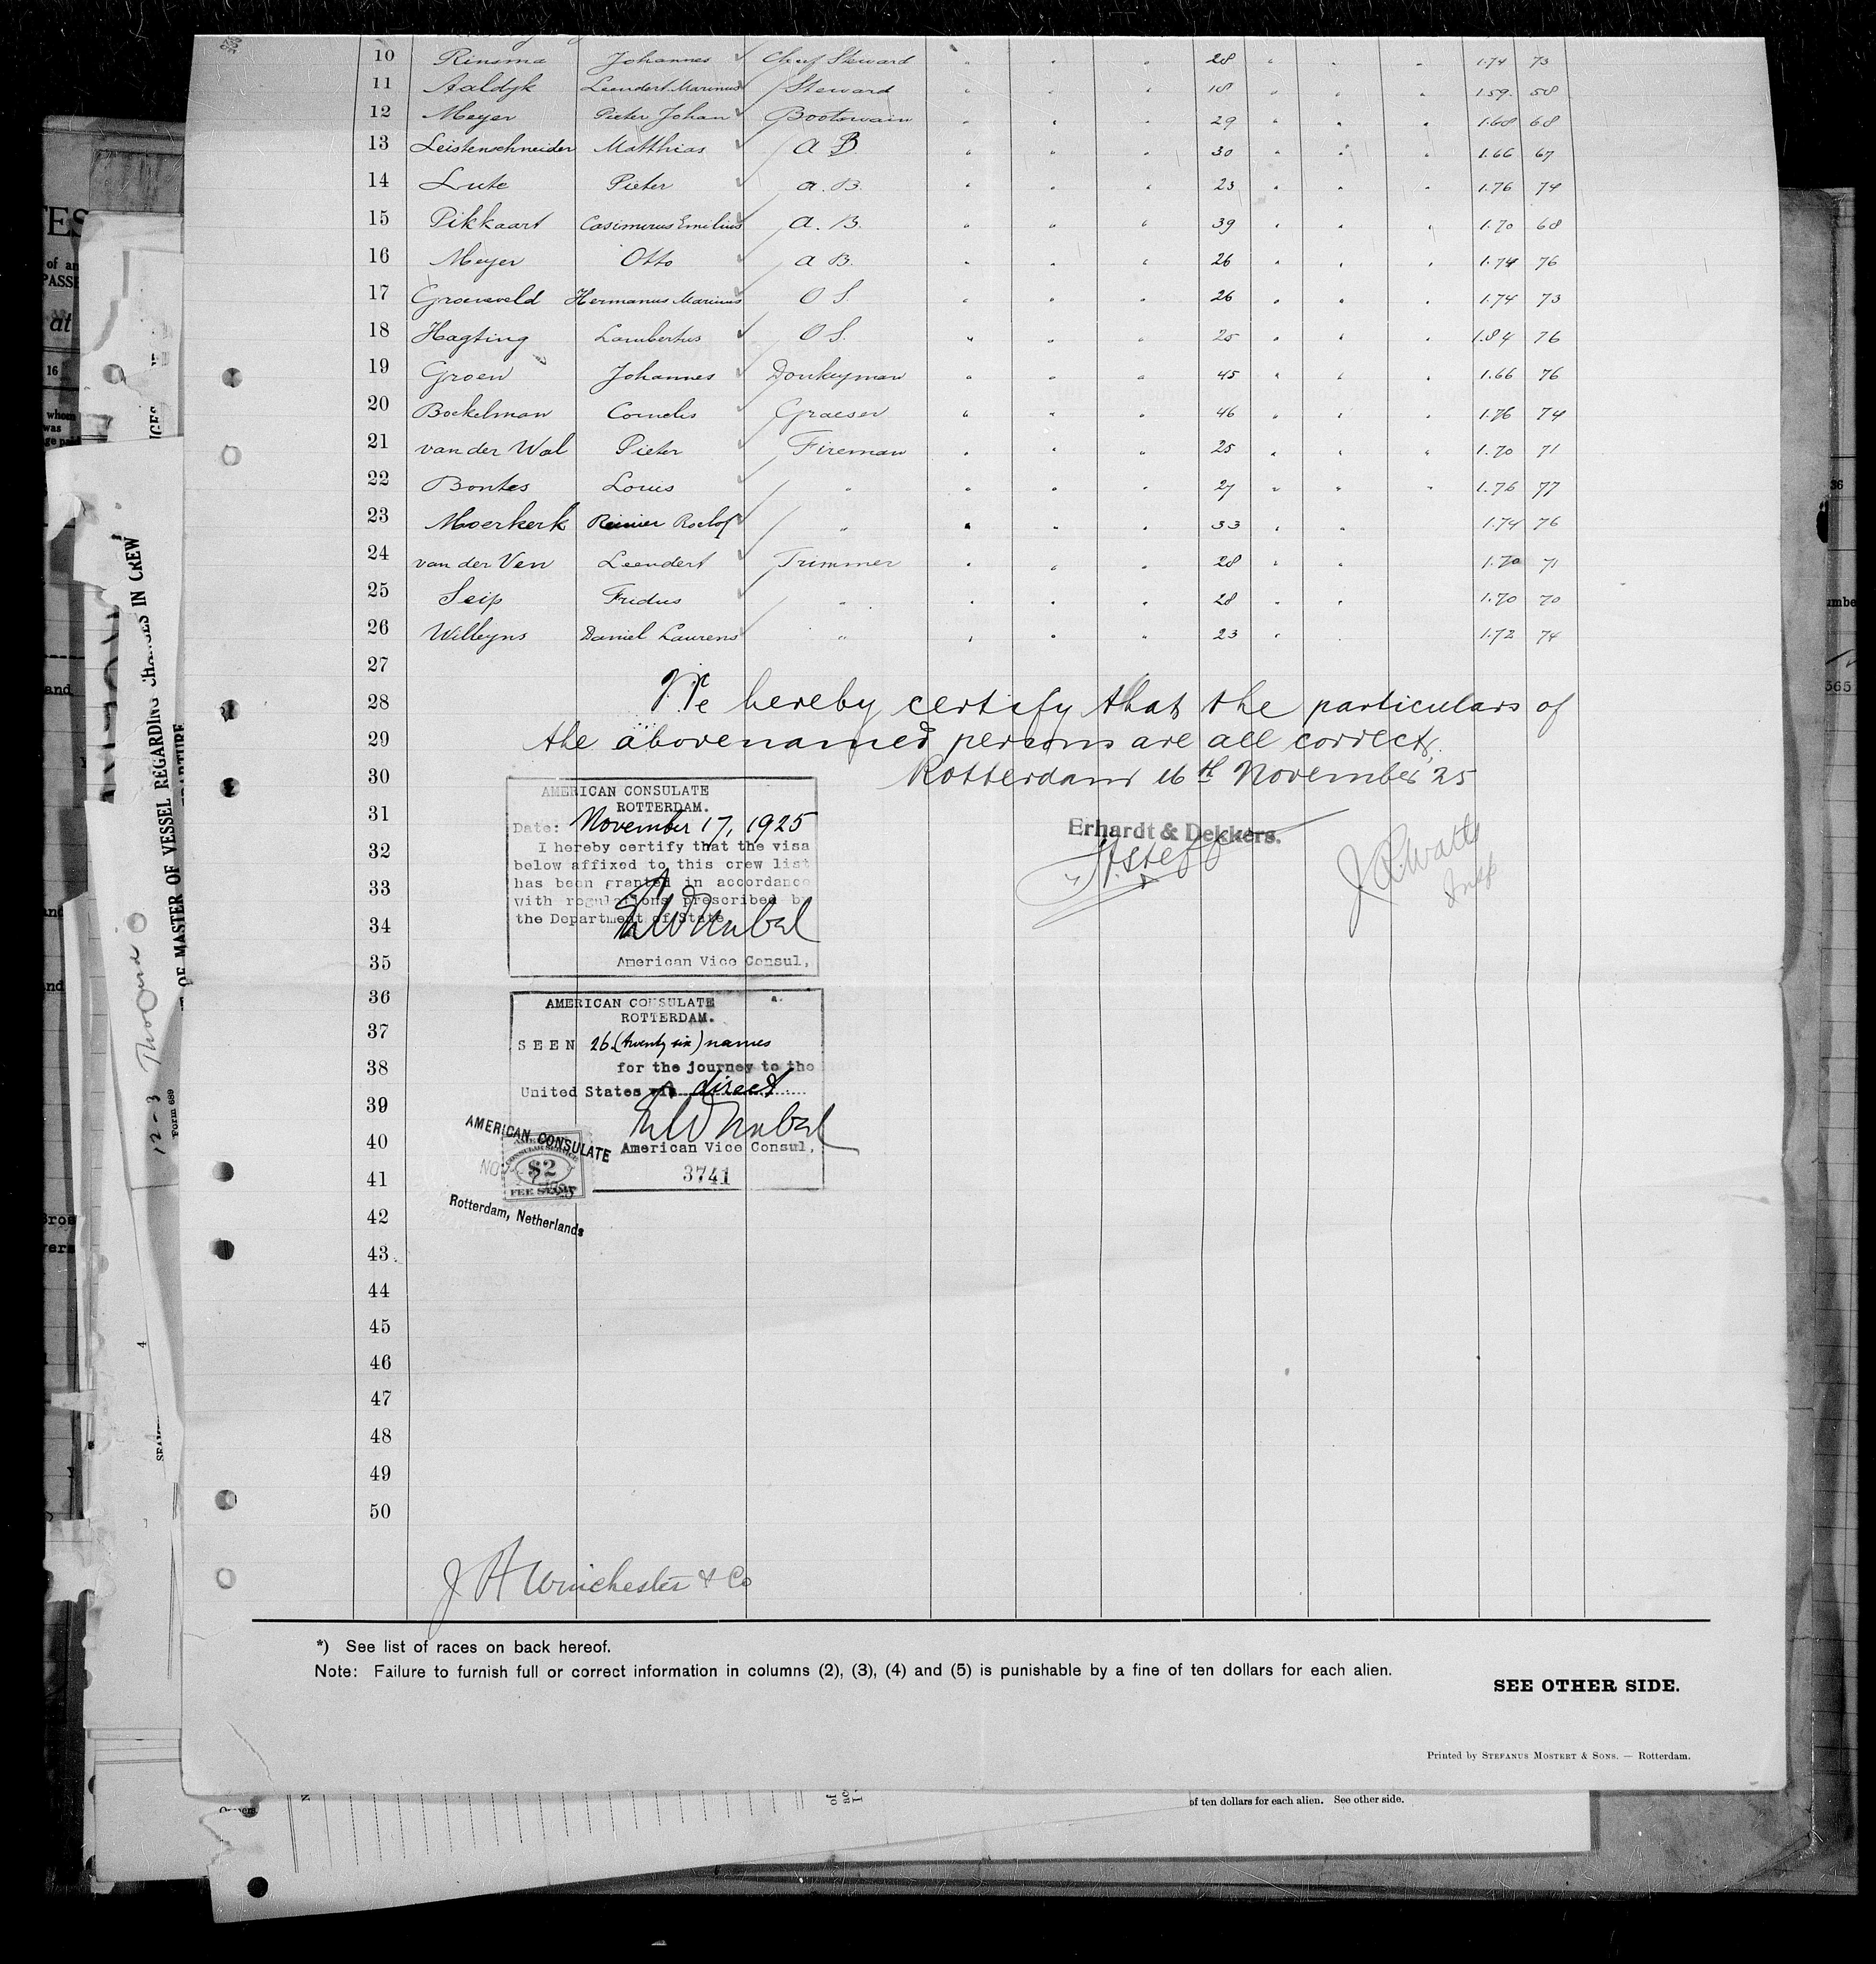 10 Rinsma Johannes ✓ Chief Steward " " " 28 " " " 1.74 73
11 Aaldyk Leendert Marinus Steward " " " 18 " " " 1.59 58
12 Meyer Pieter Johan ✓ Bootswain " " " 29 " " " 1.68 68
13 Leistenschneider Matthias ✓ A B. " " " 30 " " " 1.66 67
14 Lute Pieter ✓ a. B. " " " 23 " " " 1.76 74
15 Pikkaart Casimirus Emilius ✓ a. B. " " " 39 " " " 1.70 68
16 Meyer Otto ✓ a B. " " " 26 " " " 1.74 76
17 Groeneveld Hermanus Marinus O S. " " " 26 " " " 1.74 73
18 Hagting Lambertus ✓ O S. " " " 25 " " " 1.84 76
19 Groen Johannes ✓ Donkeyman " " " 45 " " " 1.66 76
20 Bockelman Cornelis ✓ Graeser " " " 46 " " " 1.76 74
21 van der Wal Pieter ✓ Fireman " " " 25 " " " 1.70 71
22 Bontes Louis ✓ " " " " 27 " " " 1.76 77
23 Moerkerk Reinier Roelof ✓ " " " " 33 " " 1.74 76
24 van der Ven Leendert ✓ Trimmer " " " 28 " " 1.70 71
25 Seip Fridus ✓ " " " " 28 " " 1.70 70
26 Willeyns Daniel Laurens ✓ " " " " 23 " " 1.72 74
27
28 We hereby certify that the particulars of
29 the abovenamed persons are all correct.
30 Rotterdam 16th November '25
31
32
33
34
35
36
37
38
39
40
41
42
43
44
45
46
47
48
49
50
AMERICAN CONSULATE
ROTTERDAM.
Date: November 17, 1925
I hereby certify that the visa
below affixed to this crew list
has been granted in accordance
with regulations prescribed by
the Department of State
American Vice Consul,
Erhardt & Dekkers.
J. R. Watts
Insp
AMERICAN CONSULATE
ROTTERDAM.
SEEN 26 (twenty six) names
for the journey to the
United States via direct
American Vice Consul,
3741
AMERICAN CONSULATE
CONSULAR SERVICE
$2
FEE STAMP
Rotterdam, Netherlands
J H Winchester & Co
*) See list of races on back hereof.
Note: Failure to furnish full or correct information in columns (2), (3), (4) and (5) is punishable by a fine of ten dollars for each alien.
SEE OTHER SIDE.
Printed by STEFANUS MOSTERT & SONS. — Rotterdam.
of ten dollars for each alien. See other side.
OF MASTER OF VESSEL REGARDING CHANGES IN CREW
Form 689
12-3